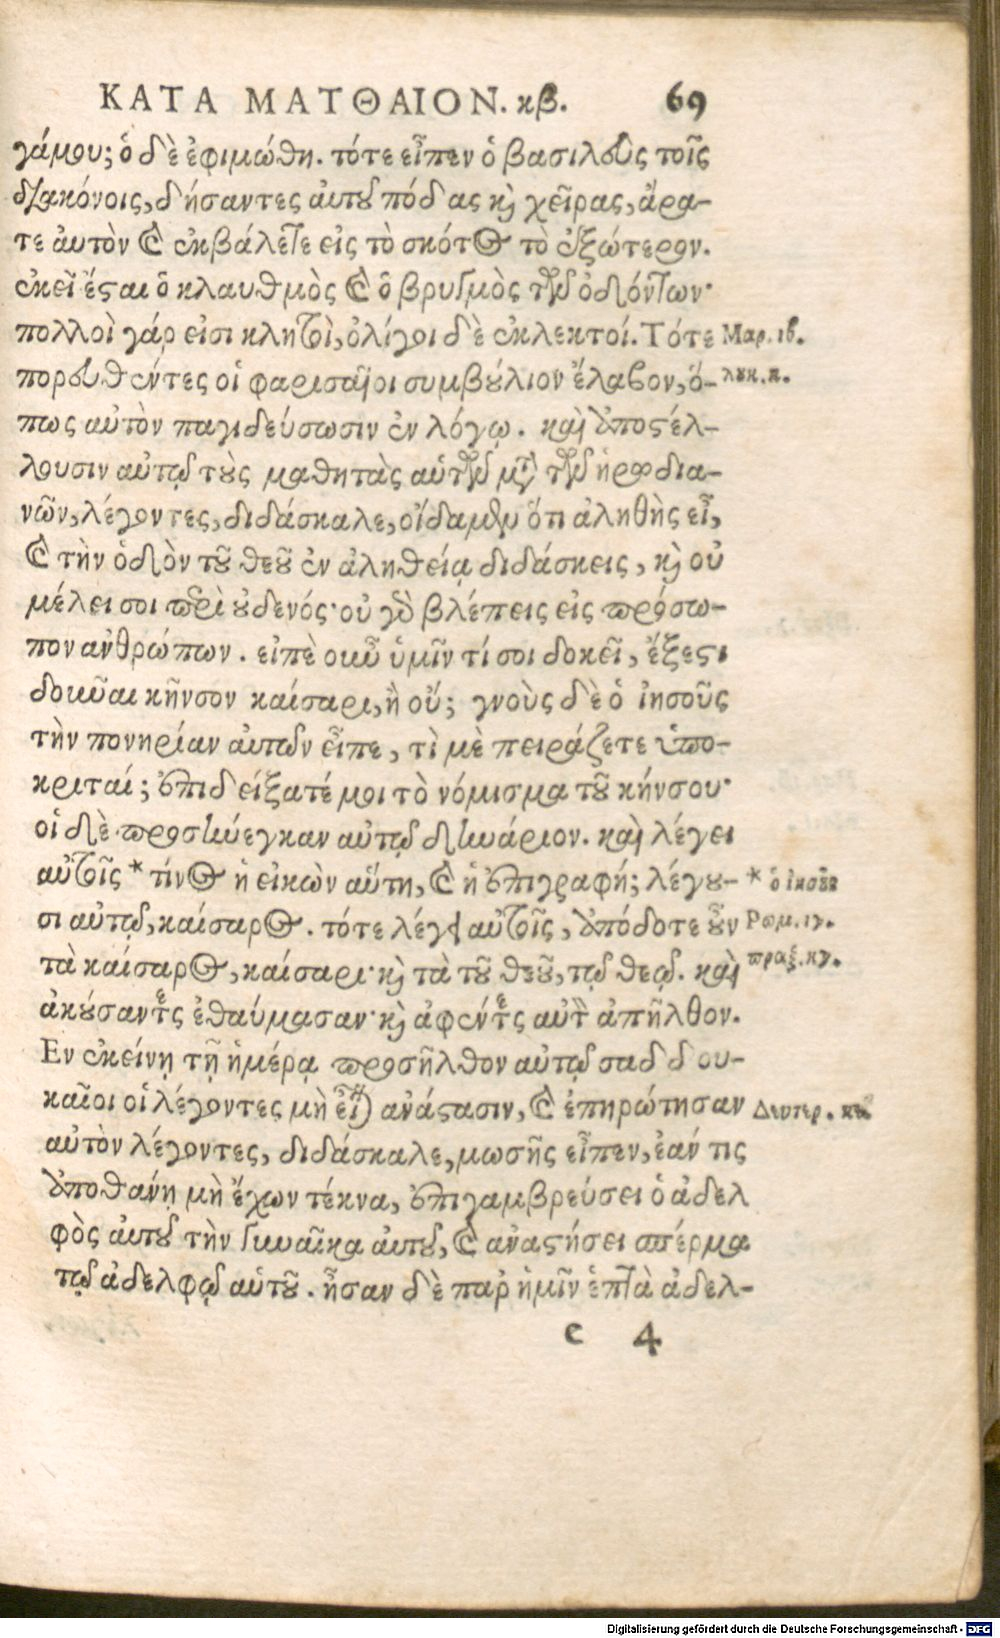 ΚΑΤΑ ΜΑΤΘΑΙΟΝ. κβ. 69
γάμου; ὁ δὲ ἐφιμώθη. τότε εἶπεν ὁ βασιλεὺς τοῖς
διακόνοις, δήσαντες αὐτοῦ πόδας κὶ χεῖρας, ἄρα-
τε ἀυτὸν καὶ ἐκβάλετε εἰς τὸ σκότος τὸ ἐξώτερον.
ἐκεῖ ἔσται ὁ κλαυθμὸς καὶ ὁ βρυγμὸς τῶν ὀδόντων·
πολλοὶ γάρ εἰσι κλητοὶ, ὀλίγοι δὲ ἐκλεκτοί. Τότε Μαρ. ιβ.
πορευθέντες οἱ φαρισαῖοι συμβούλιον ἔλαβον, ὅ- λουκ. κ.
πως αὐτὸν παγιδεύσωσιν ἐν λόγῳ. καὶ ἀποστέλ-
λουσιν αὐτῷ τοὺς μαθητὰς αὑτῶν μετὰ τῶν ἡρωδια-
νῶν, λέγοντες, διδάσκαλε, οἴδαμεν ὅτι ἀληθὴς εἶ,
καὶ τὴν ὁδὸν τοῦ θεοῦ ἐν ἀληθείᾳ διδάσκεις, κὶ οὐ
μέλει σοι περὶ οὐδενός· οὐ γὰρ βλέπεις εἰς πρόσω-
πον ανθρώπων. εἰπὲ οὖν ὑμῖν τί σοι δοκεῖ, ἔξεστι
δοῦναι κῆνσον καίσαρι, ἢ οὔ; γνοὺς δὲ ὁ ἰησοῦς
τὴν πονηρίαν αὐτῶν εἶπε, τὶ μὲ πειράζετε ὑπο-
κριταί; ἐπιδείξατέ μοι τὸ νόμισμα τοῦ κήνσου·
οἱ δὲ προσήνεγκαν αὐτῷ δηνάριον. καὶ λέγει
αὐτοῖς * τίνος ἡ εἰκὼν αὕτη, καὶ ἡ ἐπιγραφή; λέγου- * ὁ ἰησοῦς
σι αὐτῷ, καίσαρος. τότε λέγει αὐτοῖς, ἀπόδοτε οὖν Ρωμ. ιγ.
τὰ καίσαρος, καίσαρι· κὶ τὰ τοῦ θεοῦ, τῷ θεῷ. καὶ πραξ. κγ.
ἀκούσαντες ἐθαύμασαν· κὶ ἀφέντες αὐτὸν ἀπῆλθον.
Εν ἐκείνῃ τῇ ἡμέρᾳ προσῆλθον αὐτῷ σαδδου-
καῖοι οἱ λέγοντες μὴ εἶναι ανάστασιν, καὶ ἐπηρώτησαν Δευτερ.
αὐτὸν λέγοντες, διδάσκαλε, μωσῆς εἶπεν, ἐάν τις
ἀποθανῃ μὴ ἔχων τέκνα, ἐπιγαμβρεύσει ὁ ἀδελ
φὸς ἀυτοῦ τὴν γυναῖκα ἀυτοῦ, καὶ αναστήσει σπέρμα
τῷ ἀδελφῷ αὑτοῦ. ἦσαν δὲ παρ ἡμῖν ἑπτὰ ἀδελ-
e 4
Digitalisierung gefördert durch die Deutsche Forschungsgemeinschaft - DFG